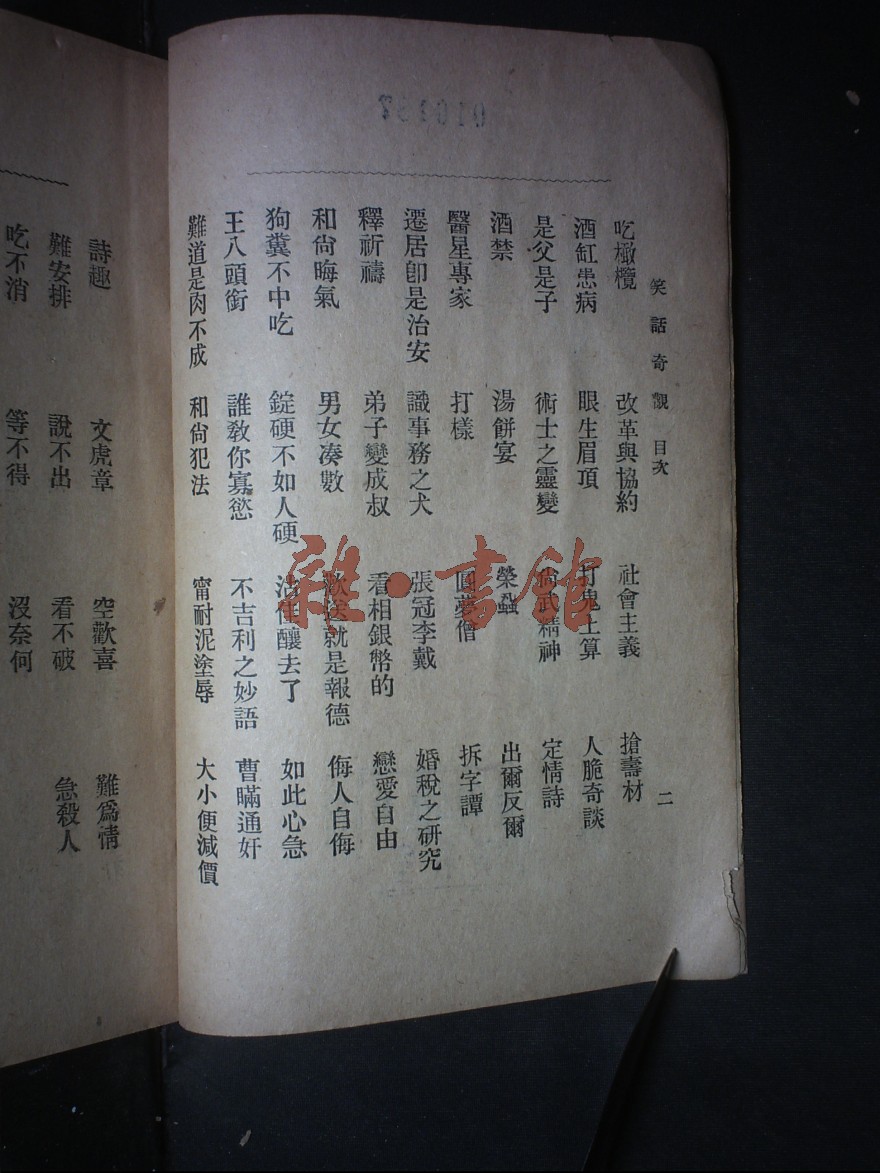 笑話奇觀 目次 二
吃橄欖 改革與協約 社會主義 搶壽材
酒缸患病 眼生眉頂 打鬼上算 人脆奇談
是父是子 術士之靈變 尚武精神 定情詩
酒禁 湯餅宴 榮 出爾反爾
醫星專家 打樣 圓夢僧 拆字譚
遷居卽是治安 識事務之犬 張冠李戴 婚稅之研究
釋祈禱 弟子變成叔 看相銀幣的 戀愛自由
和尙晦氣 男女凑數 就是報德 侮人自侮
狗糞不中吃 錠硬不如人硬 去了 如此心急
王八頭銜 誰敎你寡慾 不吉利之妙語 曹瞞通奸
難道是肉不成 和尙犯法 甯耐泥塗辱 大小便減價
詩趣 文虎章 空歡喜 難爲情
難安排 說不出 看不破 急殺人
吃不消 等不得 沒奈何
010137
雜·書館